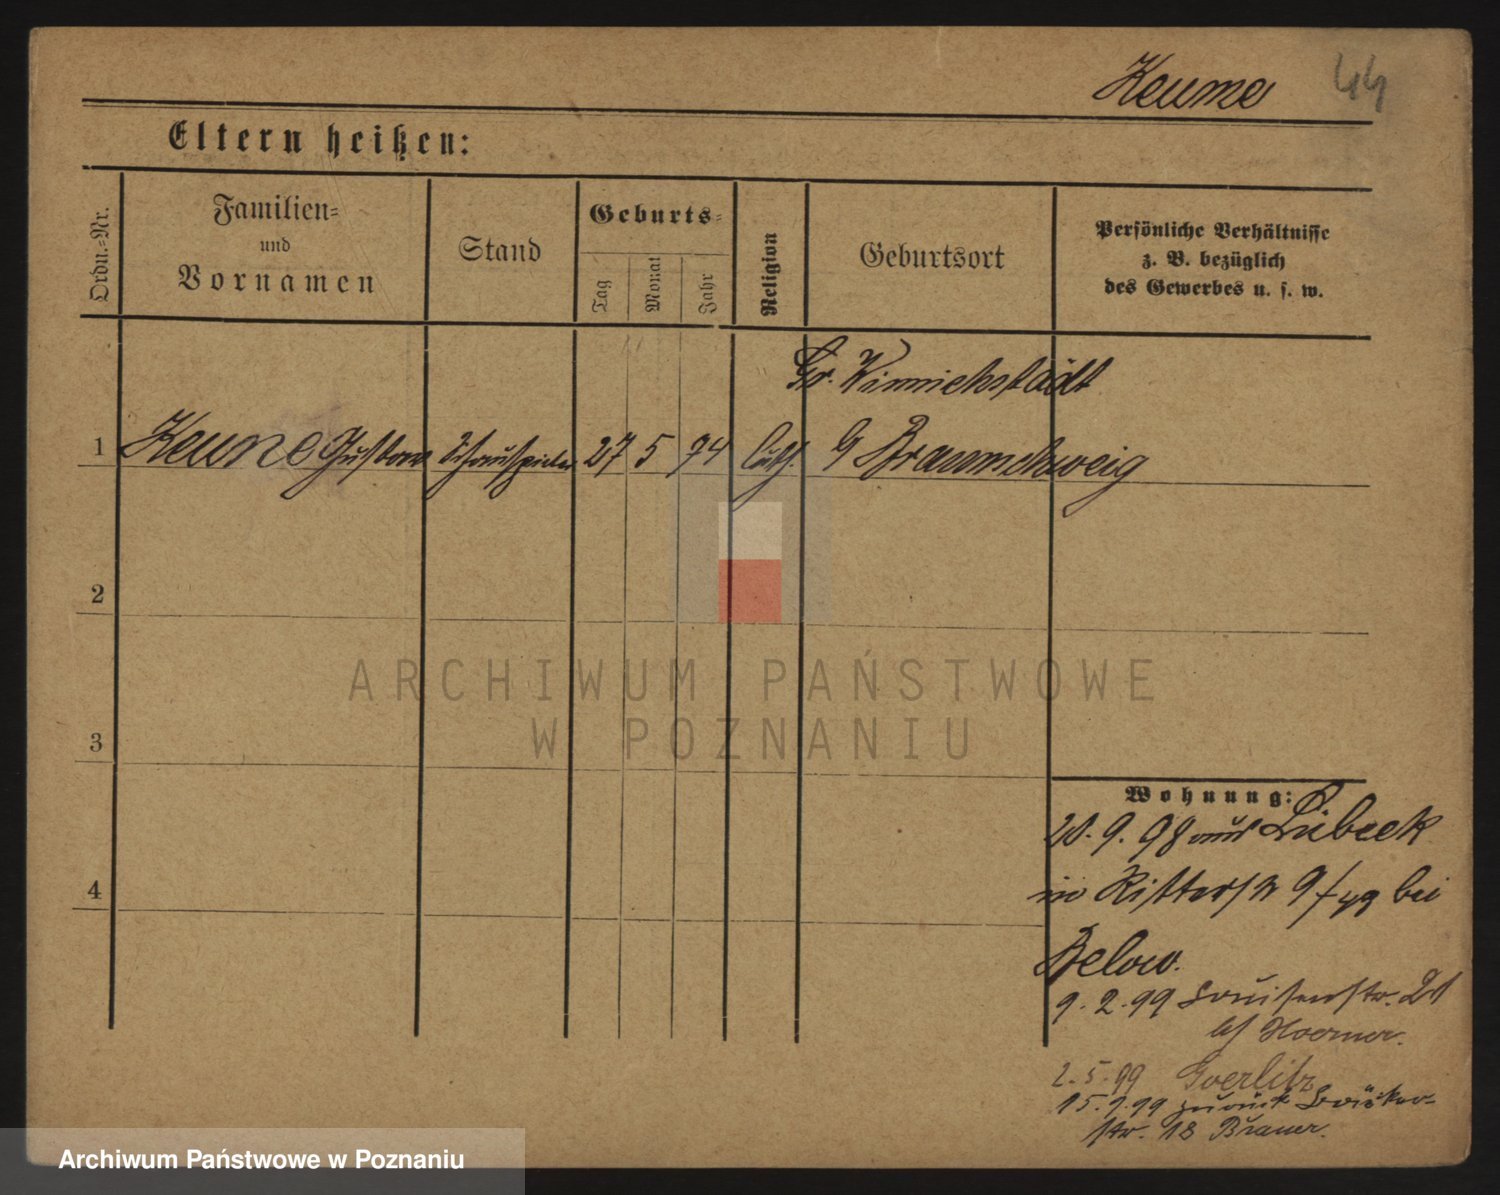 Keune 44
Eltern heißen:
Ordn.-Nr.
Familien-
und
Vornamen
Stand
Geburts-
Tag
Monat
Jahr
Religion
Geburtsort
Persönliche Verhältnisse
z. B. bezüglich
des Gewerbes u. s. w.
Gr. Winnichstädt
1 Keune Gustav Schauspieler 27 5 74 luth. Braunschweig
2
3
4
ARCHIWUM PAŃSTWOWE
W POZNANIU
Wohnung:
9. 98 aus Lübeck
in Ritterstr 9/ bei
Below.
9. 2. 99 Louisenstr.
2. 5. 99 Goerlitz
15. 9. 99 zurück
str. 18 Brauer.
Archiwum Państwowe w Poznaniu